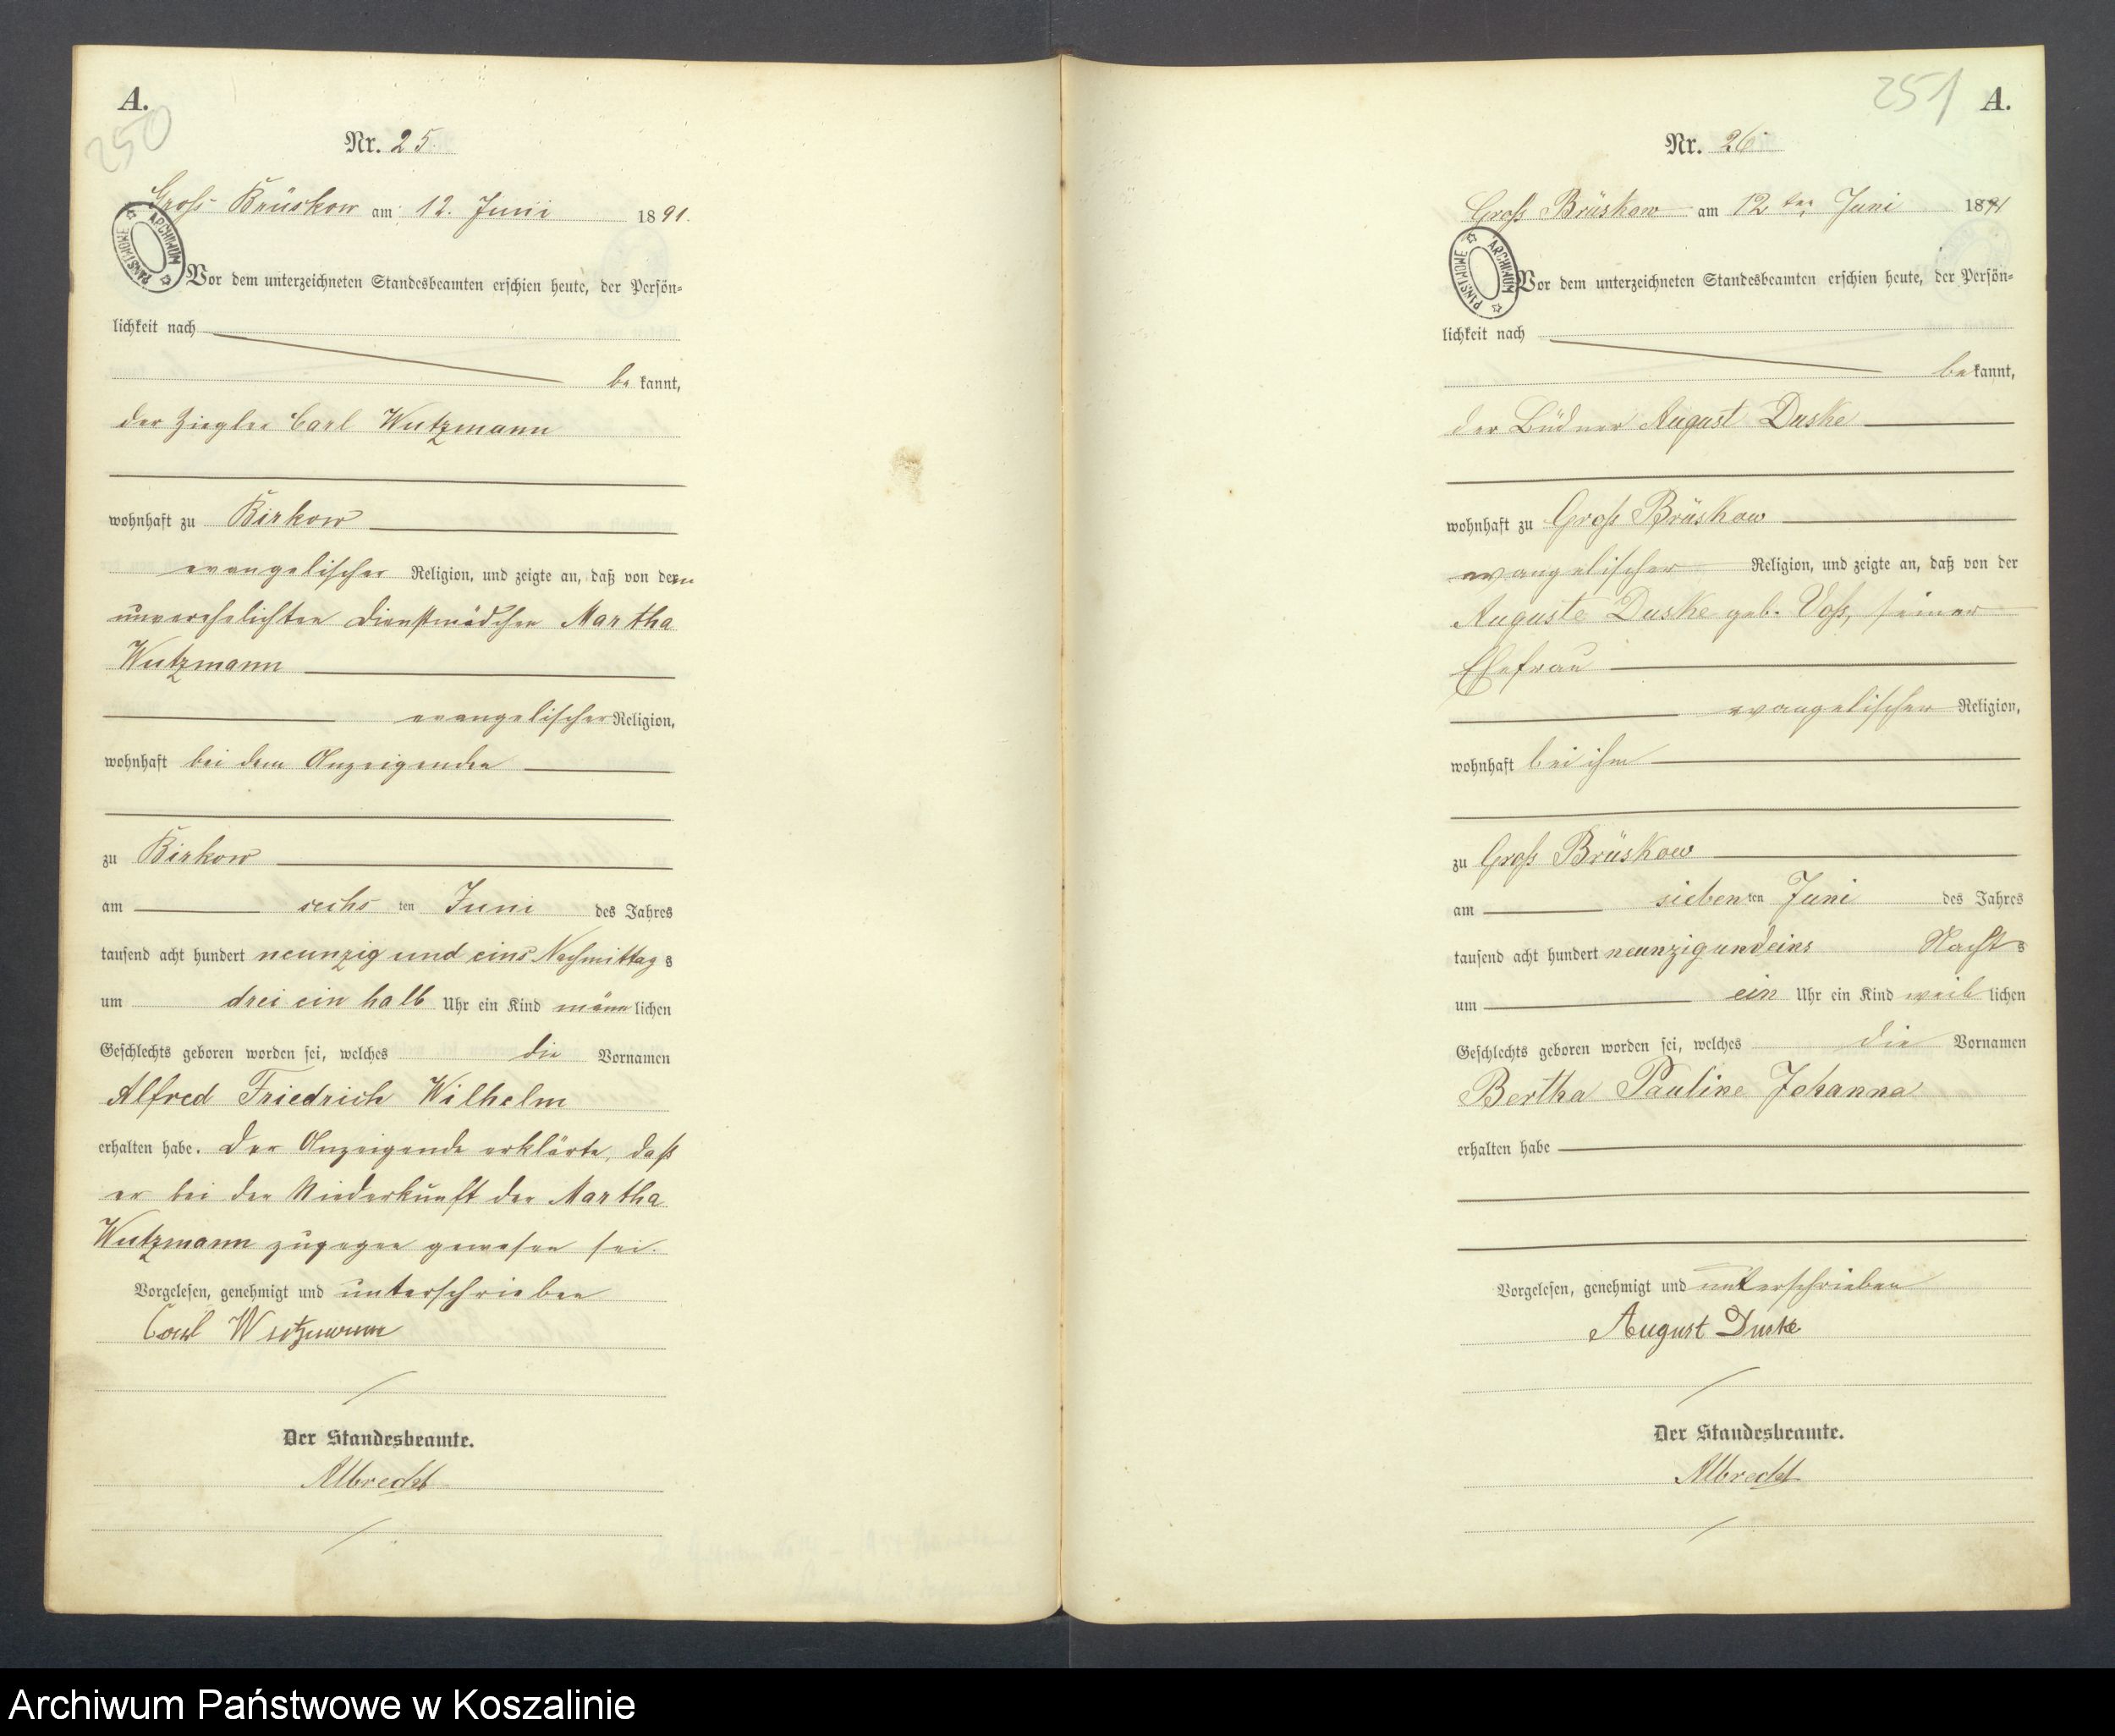 A.
250
Nr. 25.
Gross Brüskow am 12. Juni 1891.
ARCHIWUM PAŃSTWOWE
Vor dem unterzeichneten Standesbeamten erschien heute, der Persön-
lichkeit nach
be kannt,
der Ziegler Carl Wutzmann
wohnhaft zu Birkow
evangelischer Religion, und zeigte an, daß von der
unverehelichten Dienstmädchen Martha
Wutzmann
evangelischer Religion,
wohnhaft bei dem Anzeigenden
zu Birkow
am sechs ten Juni des Jahres
tausend acht hundert neunzig und eins Nachmittag s
um drei ein halb Uhr ein Kind männ lichen
Geschlechts geboren worden sei, welches die Vornamen
Alfred Friedrich Wilhelm
erhalten habe. Der Anzeigende erklärte, daß
er bei der Niederkunft der Martha
Wutzmann zugegen gewesen sei.
Vorgelesen, genehmigt und unterschrieben
Carl Wutzmann
Der Standesbeamte.
Albrecht
251
A.
Nr. 26
Groß Brüskow am 12 ten Juni 1891
ARCHIWUM PAŃSTWOWE
Vor dem unterzeichneten Standesbeamten erschien heute, der Persön-
lichkeit nach
be kannt,
der Büdner August Duske
wohnhaft zu Groß Brüskow
evangelischer Religion, und zeigte an, daß von der
Auguste Duske geb. Voß, seiner
Ehefrau
evangelischer Religion,
wohnhaft bei ihm
zu Groß Brüskow
am sieben ten Juni des Jahres
tausend acht hundert neunzig und eins Nacht s
um ein Uhr ein Kind weib lichen
Geschlechts geboren worden sei, welches die Vornamen
Bertha Pauline Johanna
erhalten habe
Vorgelesen, genehmigt und unterschrieben
August Duske
Der Standesbeamte.
Albrecht
Archiwum Państwowe w Koszalinie